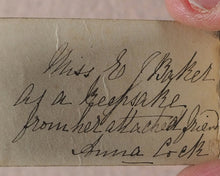 Miss E J Baker
as a Keepsake
from her attached fried
Anna Lock